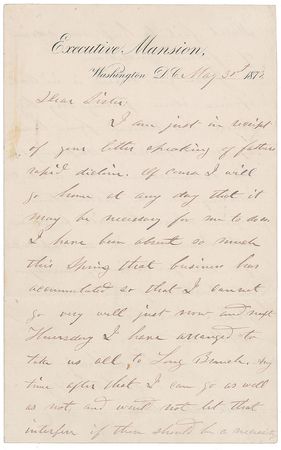 Executive Mansion,
Washington D.C. May 31st 1873
Dear Sister:
I am just in receipt
of your letter speaking of fathers
rapid decline. Of course I will
go home at any day that it
may be necessary for me to do so.
I have been absent so much
this Spring that business has
accumulated so that I cannot
go very well just now and next
Thursday I have arranged to
take us all to Long Branch. Any
time after that I can go as well
as not, and would not let that
interfere if there should be a necessity